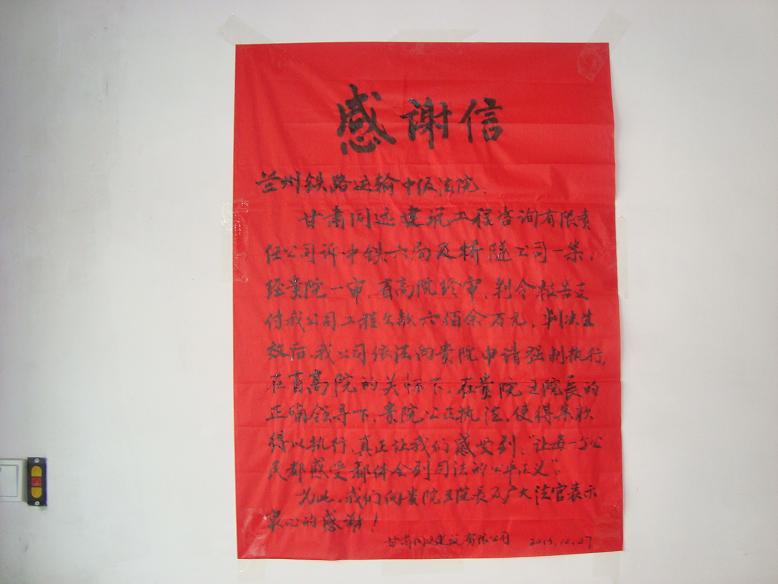 感谢信
兰州铁路运输中级法院
甘肃同远建筑工程咨询有限责
任公司诉中铁六局及桥隧公司一案,
经贵院一审,省高院终审,判令被告支
付我公司工程欠款六佰余万元,判决生
效后,我公司依法向贵院申请强制执行,
在省高院的关怀下,在贵院王院长的
正确领导下,贵院公正执法,使得案款
得以执行,真正让我们感受到,“让每一个公
民都感受都体会到司法的公平正义”。
为此,我们向贵院王院长及广大法官表示
衷心的感谢!
甘肃同远建筑 有限公司 2015.10.27